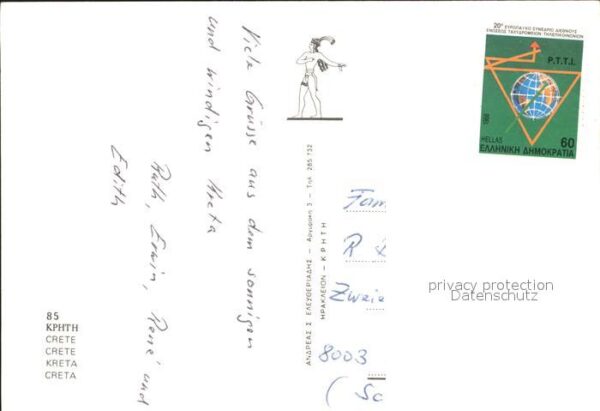 Viele Grüsse aus dem sonnigen
und windigen Kreta
Ruth, Erwin, René und
Edith
85
ΚΡΗΤΗ
CRETE
CRETE
KRETA
CRETA
ΑΝΔΡΕΑΣ Σ ΕΛΕΥΘΕΡΙΑΔΗΣ - Αργυράκη 5 - Τηλ. 285.732
ΗΡΑΚΛΕΙΟΝ - ΚΡΗΤΗ
20º ΕΥΡΩΠΑΪΚΟ ΣΥΝΕΔΡΙΟ ΔΙΕΘΝΟΥΣ
ΕΝΩΣΕΩΣ ΤΑΧΥΔΡΟΜΕΙΩΝ ΤΗΛΕΠΙΚΟΙΝΩΝΙΩΝ
P.T.T.I.
1988
HELLAS 60
ΕΛΛΗΝΙΚΗ ΔΗΜΟΚΡΑΤΙΑ
Fam
R
Zweie
8003
(Sc
privacy protection
Datenschutz